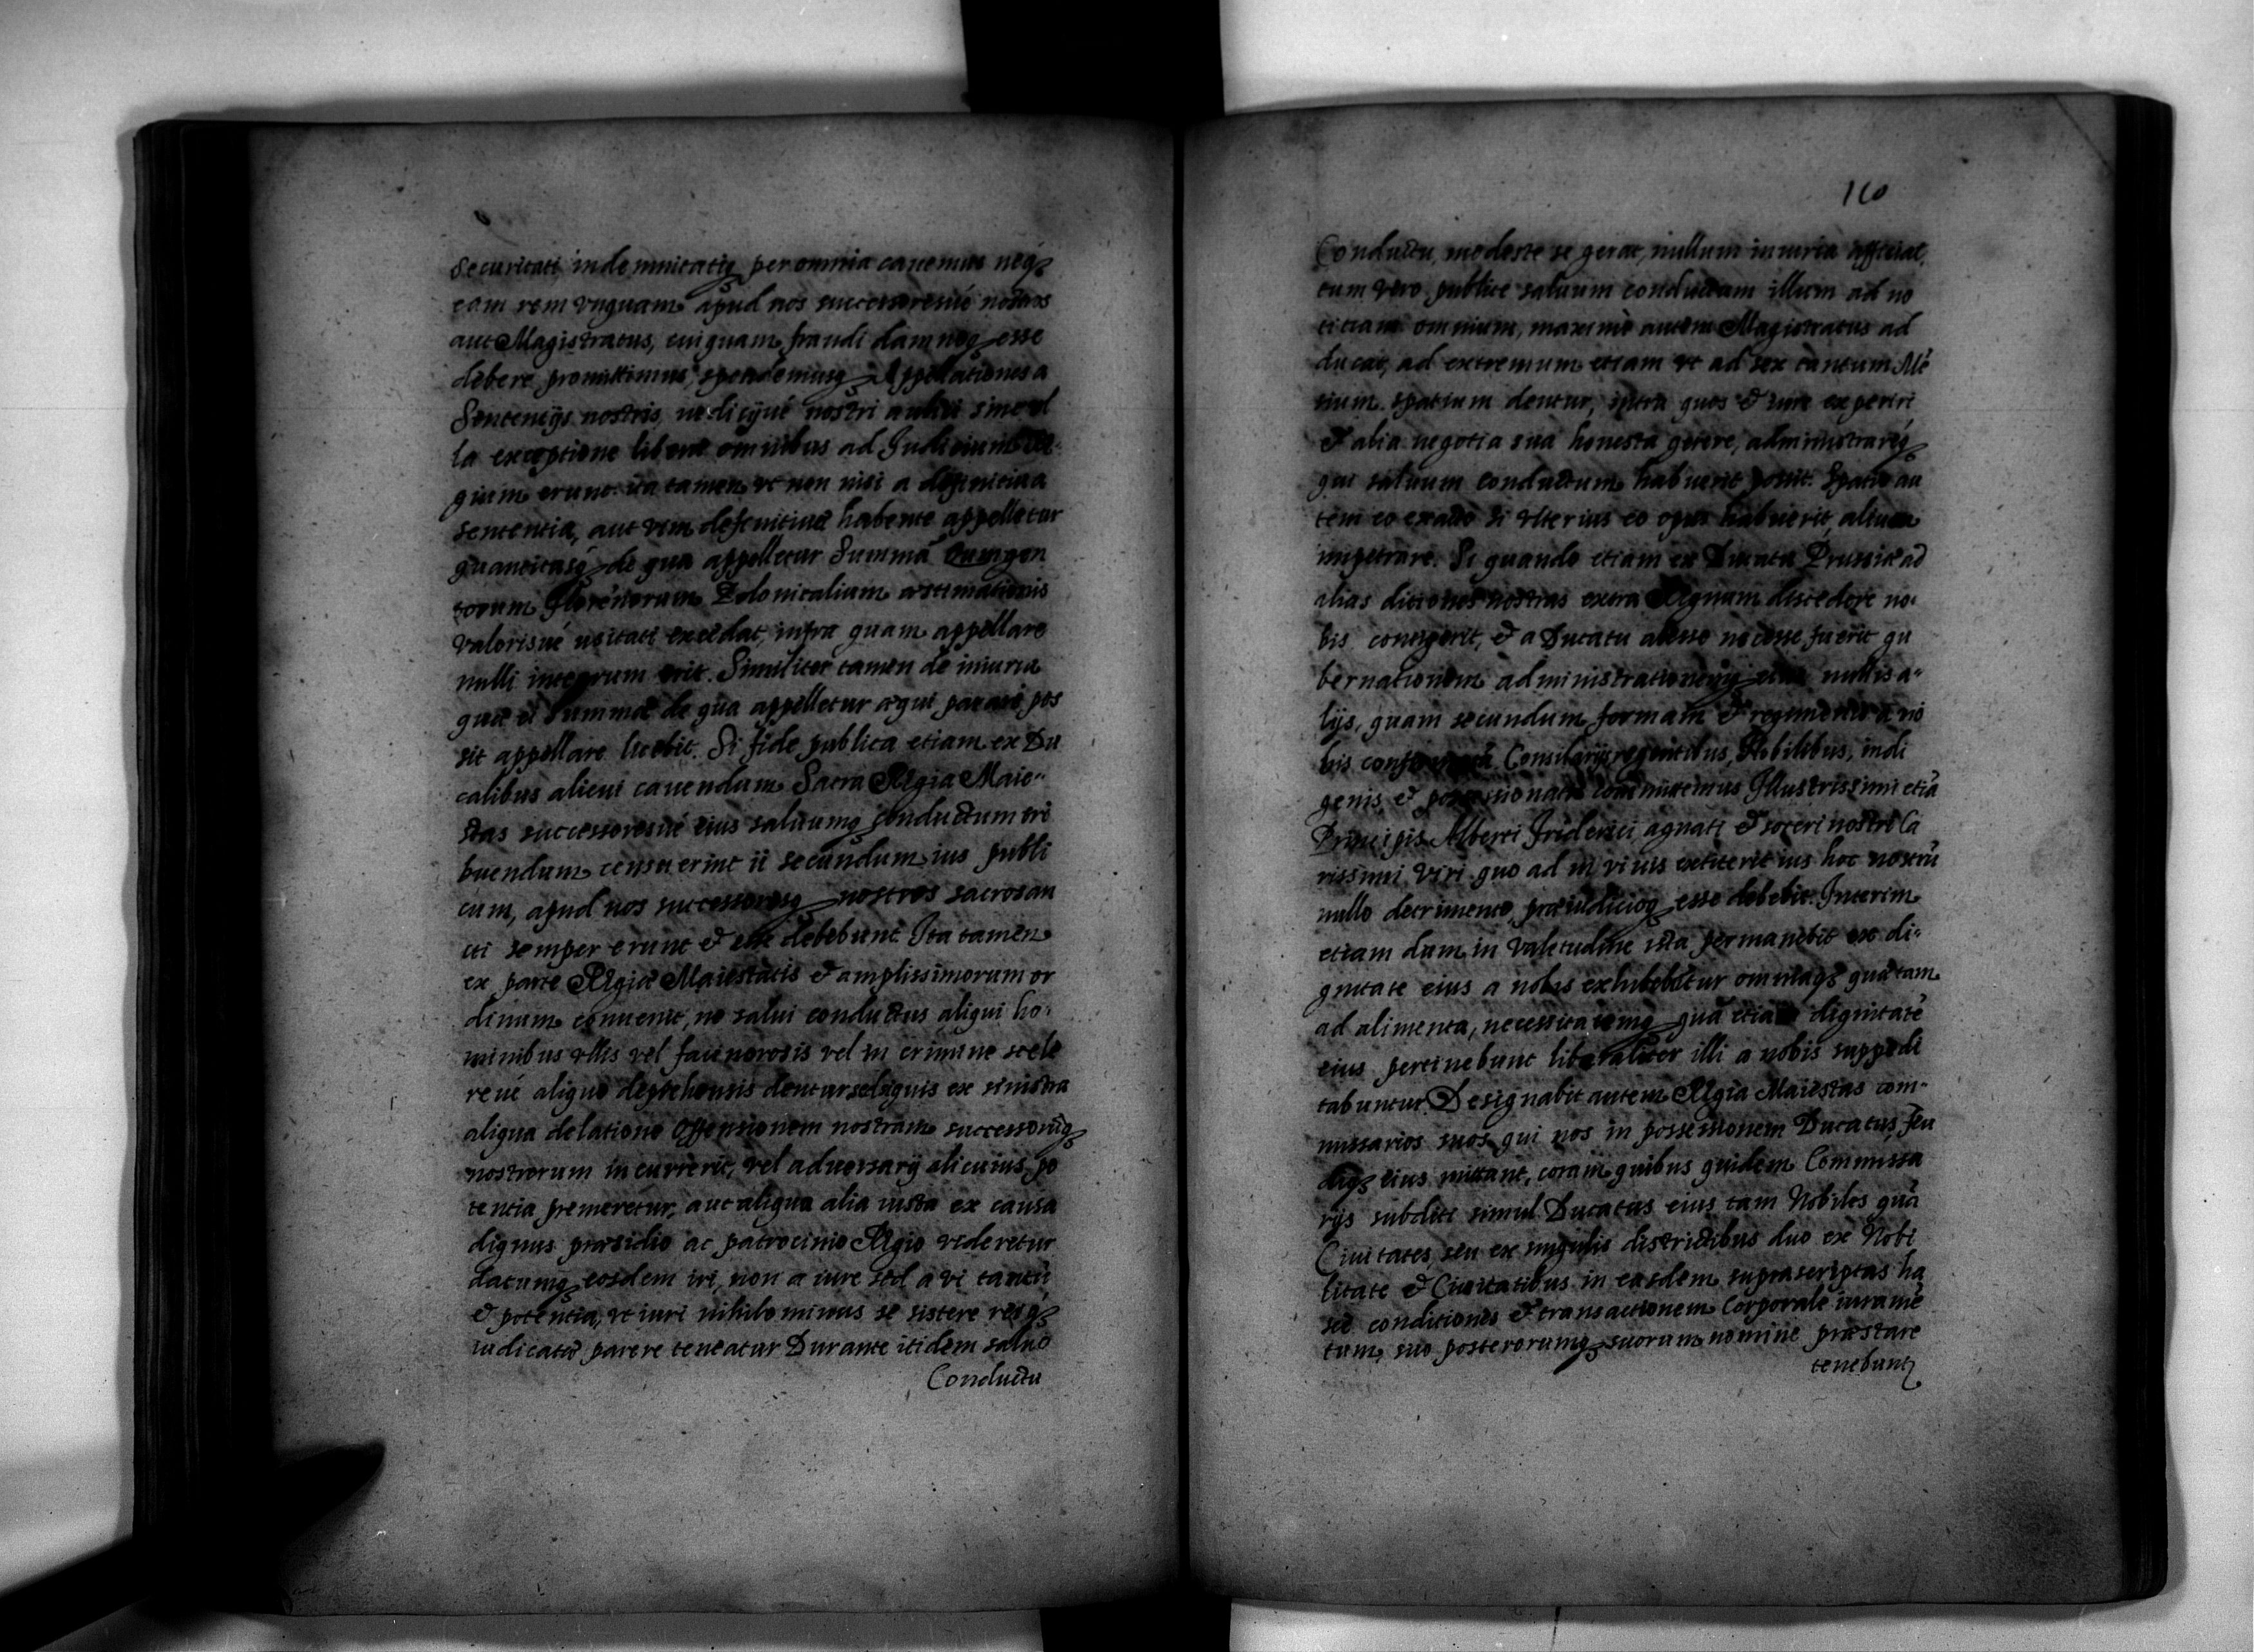 Securitati indemnitatiq; per omnia cauemus neq;
eam rem vnquam apud nos successoresué nostros
aut Magistratus, cuiquam fraudi damnoq; esse
debere promittimus, spondemusq; Appellationes a
Sentencijs nostris, iudicijué nostri aulici sine vl
la exceptione liberae omnibus ad Iudicium
gium erunt. ita tamen vt non nisi a definitiua
sententia, aut vim definitiuae habente appelletur
quantitasq; de qua appelletur Summã quingen
torum florenorum Polonicalium aestimationis
valorisué usitati excedat, infra quam appellare
nulli integrum erit. Similiter tamen de iniuria
quae ei Summae de qua appelletur aequi parari pos
sit appellare licebit. Si fide publica etiam ex Du
calibus alicui cauendum Sacra Regia Maie-
stas successoresué eius saluumq; conductum tri
buendum censuerint ii secundum ius publi
cum, apud nos successoresq; nostros sacrosan
cti semper erunt & esse debebunt Ita tamen
ex parte Regiae Maiestatis & amplissimorum or
dinum conuenit, ne salui conductus aliqui ho-
minibus vllis vel facinorosis vel in crimine scele
reué aliquo deprehensis dentur sed si quis ex sinistra
aliqua delatione Offensionem nostram successorũq;
nostrorum incurrerit, vel aduersarij alicuius po
tentia premeretur, aut aliqua alia iusta ex causa
dignus praesidio ac patrocinio Regio videretur
datumq; eosdem iri, non a iure sed a vi tantũ
& potentia, vt iuri nihilominus se sistere reiq;
iudicatae parere teneatur Durante itidem saluo
Conductu
160
Conductu, modeste se gerat, nullum iniuria afficiat,
tum vero publice saluum conductum illum ad no
titiam omnium, maximè autem Magistratus ad
ducat, ad extremum etiam vt ad sex tantum Mẽ
sium spatium dentur, intra quos & iure experiri
& alia negotia sua honesta gerere, administrareq;
qui saluum conductum habuerit possit. Spatio au
tem eo exacto si vlterius eo opus habuerit, alium
impetrare. Si quando etiam ex Ducatu Prussiae ad
alias ditiones nostras extra Regnum discedere no-
bis contigerit, & a Ducatu abesse necesse fuerit gu
bernationem administrationemq; eius nullis a-
lijs, quam secundum formam & regimentis a no
bis Consiliarijs regentibus, Nobilibus, indi
genis & possessionatis committemus Illustrissimi etiã
Principis Alberti Friderici agnati & soceri nostri Ca
rissimi viri quo ad in viuis extiterit ius hoc nostrũ
nullo detrimento, praeiudicioq; esse debebit. Interim
etiam dum in valetudine ista permanebit ex di-
gnitate eius a nobis exhibebitur omniaq; quae tam
ad alimenta, necessitatemq; quã etiam dignitatẽ
eius pertinebunt liberaliter illi a nobis suppedi
tabuntur. Designabit autem Regia Maiestas com-
missarios suos qui nos in possessionem Ducatus, feu
diq; eius mittant, coram quibus quidem Commissa
rijs subditi simul Ducatus eius tam Nobiles quã
Ciuitates, seu ex singulis districtibus duo ex Nobi
litate & Ciuitatibus in easdem suprascriptas ha
sce conditiones & transactionem Corporale iuramẽ
tum, suo posterorumq; suorum nomine praestare
tenebunt